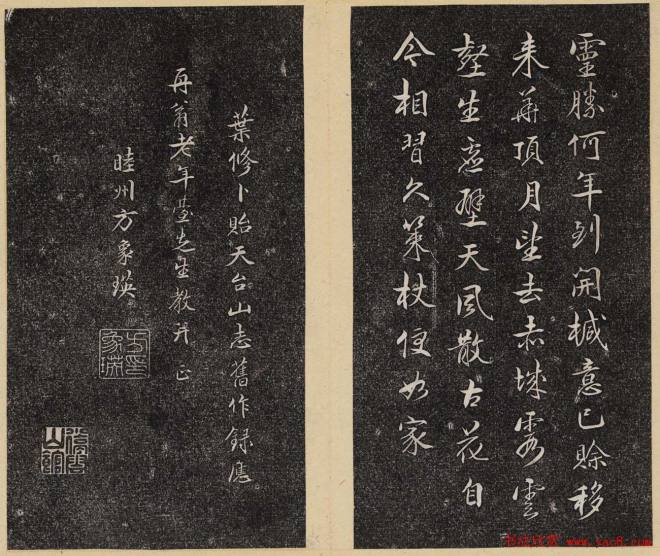 靈勝何年到開椷意已賒移
来華頂月望去赤城霞雲
壑生虛壁天風散古花自
今相習久策杖便如家
葉修卜貽天台山志舊作録應
再翁老年臺先生教并正
睦州方象瑛
书法欣赏 www.yac8.com